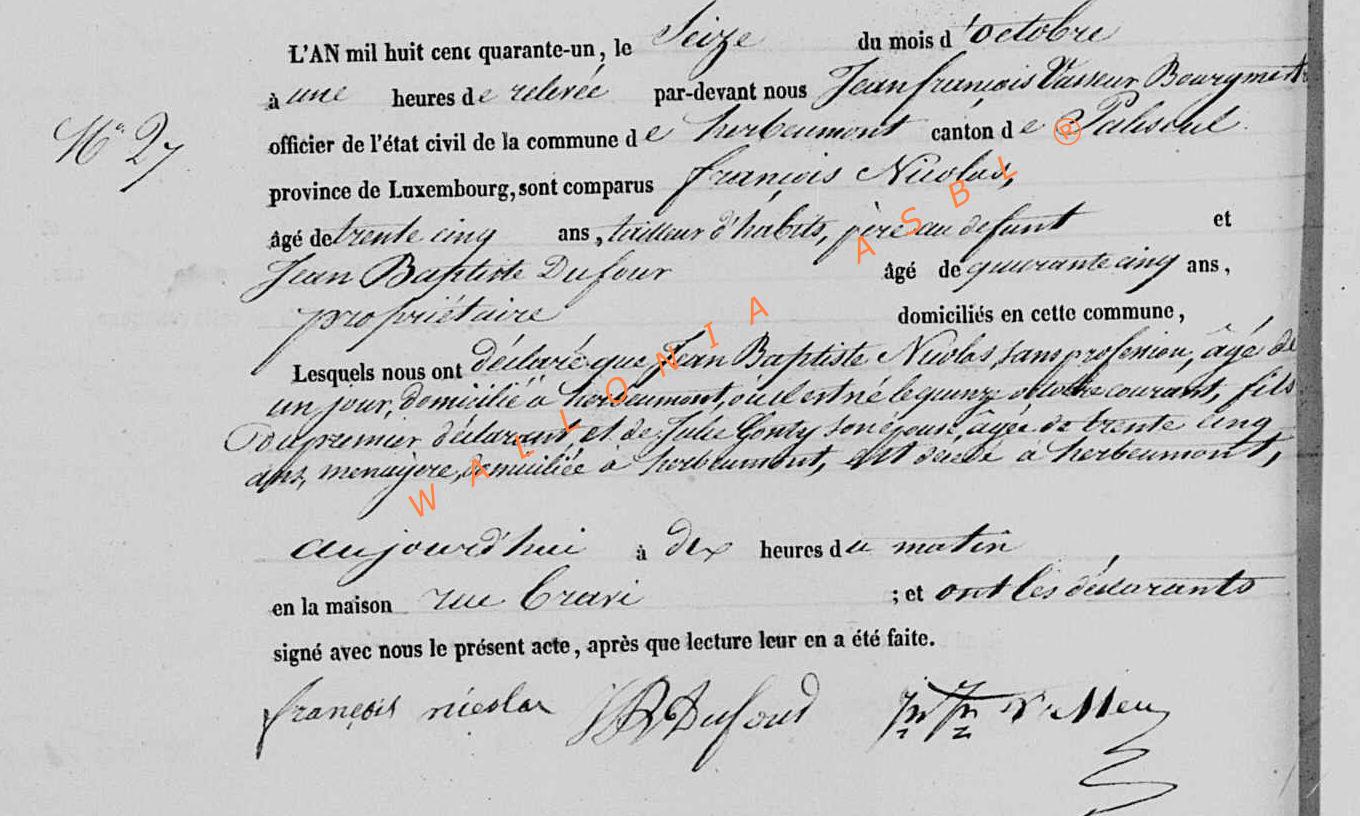 L'AN mil huit cent quarante-un, le Seize du mois d'octobre
à une heures de relevée par-devant nous Jean françois Vasseur Bourgmestre
N° 27
officier de l'état civil de la commune de herbeumont canton de Paliseul
province de Luxembourg, sont comparus françois Nicolas,
âgé de trente cinq ans, tailleur d'habits, père au defunt et
Jean Baptiste Dufour âgé de quarante cinq ans,
propriétaire domiciliés en cette commune,
Lesquels nous ont déclaré que Jean Baptiste Nicolas, sans profession, âgé de
un jour, domicilié à herbeumont, où il est né le quinze octobre courant, fils
du premier déclarant, et de Julie Gonty son épouse, âgée de trente cinq
ans, menagere, domiciliée à herbeumont, est décédé à herbeumont,
aujourd'hui à dix heures du matin
en la maison rue ; et ont les déclarants
signé avec nous le présent acte, après que lecture leur en a été faite.
françois nicolas JB Dufour
WALLONIA ASBL ®